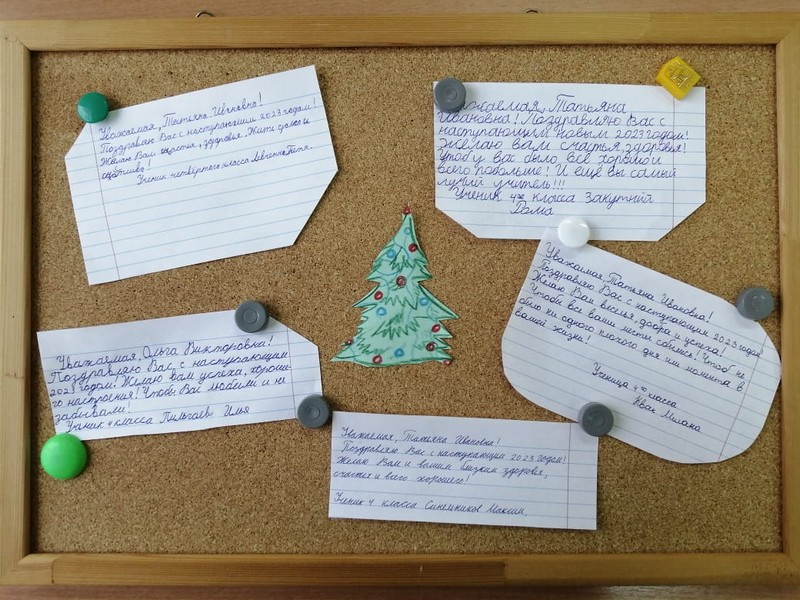 Уважаемая, Татьяна Ивановна!
Поздравляю Вас с наступающим 2023 годом!
Желаю Вам счастья, здоровья. Жить долго и
счастливо!
Ученик четвертого класса Левченко Петя.
Уважаемая, Татьяна
Ивановна! Поздравляю Вас с
наступающим новым 2023 годом!
Желаю вам счастья, здоровья!
Чтоб у вас было всё хорошо и
всего побольше! И ещё вы самый
лучий учитель!!!
Ученик 4го класса Закутний
Дома
Уважаемая, Татьяна Ивановна!
Поздравляю Вас с наступающим 2023 годом!
Желаю Вам веселья, добра и успеха!
Чтобы все ваши мечты сбылись! Чтоб не
было ни одного плохого дня или момента в
вашей жизни!
Ученица 4го класса
Квак Милана
Уважаемая, Ольга Викторовна!
Поздравляю Вас с наступающим
2023 годом! Желаю вам успеха, хороше-
го настроения! Чтобы Вас любили и не
забывали!
Ученик 4 класса Пильгаев Илья
Уважаемая, Татьяна Ивановна!
Поздравляю Вас с наступающим 2023 годом!
Желаю Вам и вашим близким здоровья,
счастья и всего хорошего!
Ученик 4 класса Синельников Максим.